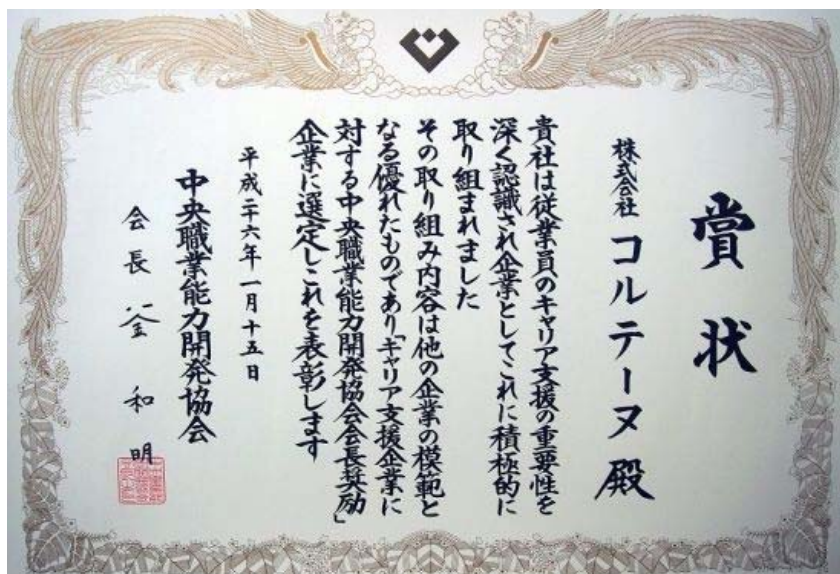 賞状
株式会社 コルテーヌ殿
貴社は従業員のキャリア支援の重要性を
深く認識され企業としてこれに積極的に
取り組まれました
その取り組み内容は他の企業の模範と
なる優れたものであり「キャリア支援企業に
対する中央職業能力開発協会会長奨励」
企業に選定しこれを表彰します
平成二十六年一月十五日
中央職業能力開発協会
会長 釜 和明